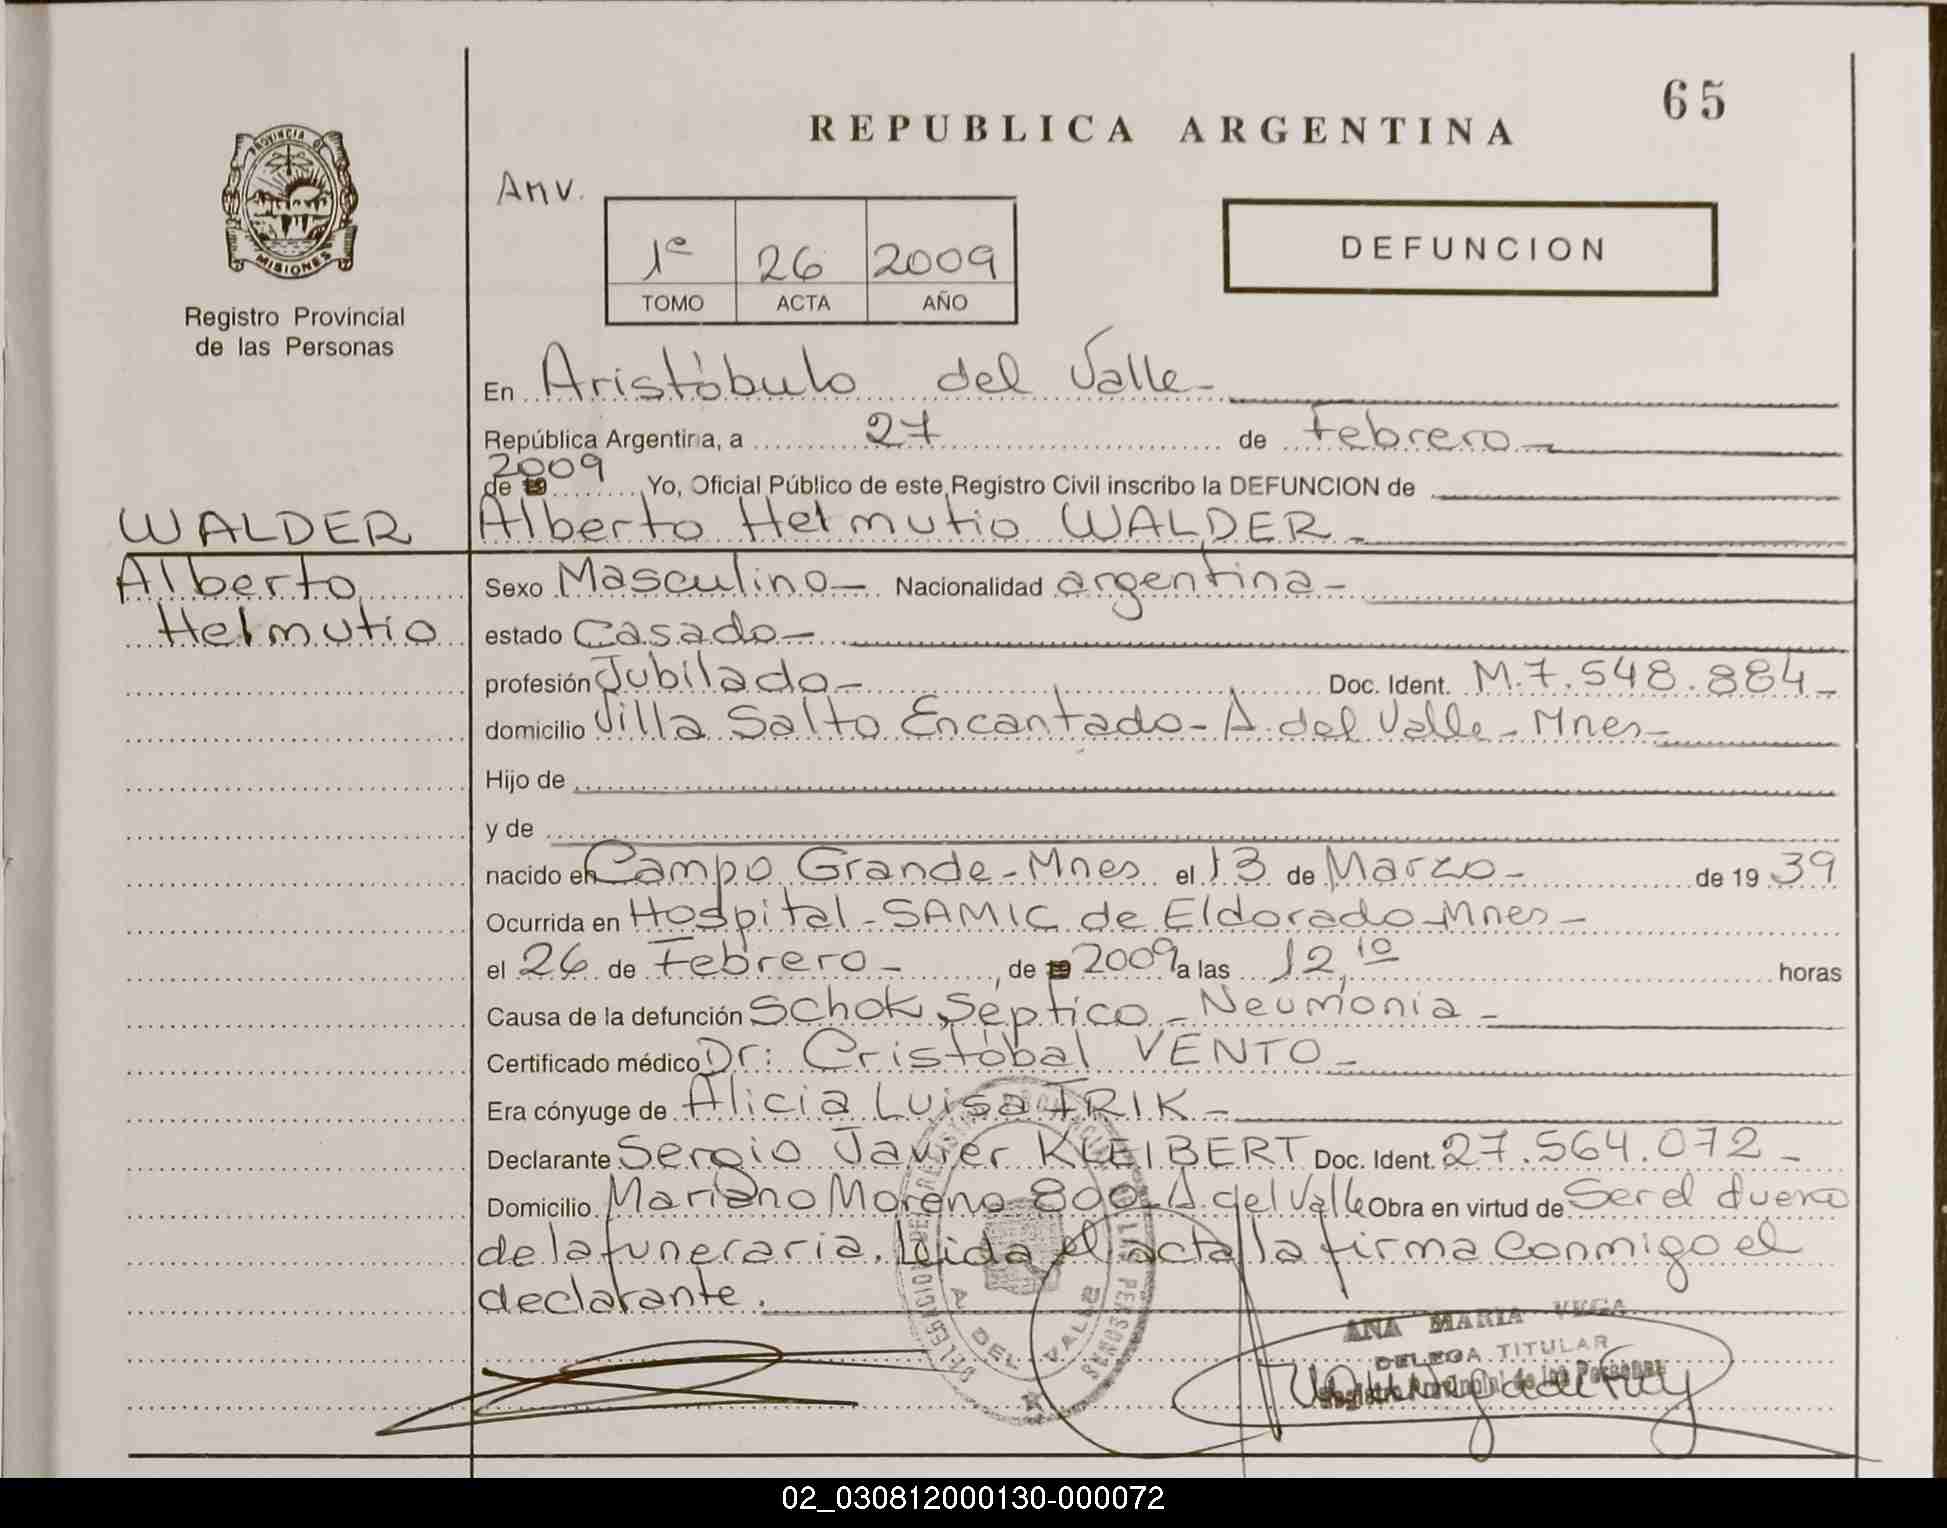 65
REPUBLICA ARGENTINA
PROVINCIA DE
MISIONES
Registro Provincial
de las Personas
Anv.
1º 26 2009
TOMO ACTA AÑO
DEFUNCION
En Aristóbulo del Valle
República Argentina, a 27 de Febrero
de 19 2009 Yo, Oficial Público de este Registro Civil inscribo la DEFUNCION de
WALDER
Alberto Helmutio
Alberto Helmutio WALDER
Sexo Masculino Nacionalidad argentina
estado Casado
profesión Jubilado Doc. Ident. M.7.548.884
domicilio Villa Salto Encantado - A. del Valle - Mnes
Hijo de
y de
nacido en Campo Grande - Mnes el 13 de Marzo de 19 39
Ocurrida en Hospital - SAMIC de Eldorado - Mnes
el 26 de Febrero de 19 2009 a las 12,10 horas
Causa de la defunción Schok Séptico - Neumonia
Certificado médico Dr: Cristóbal VENTO
Era cónyuge de Alicia Luisa FRIK
Declarante Sergio Javier KLEIBERT Doc. Ident. 27.564.072
Domicilio Mariano Moreno 800 - A. del Valle Obra en virtud de Ser el dueño
de la funeraria. Leida el acta la firma conmigo el
declarante.
A. DEL VALLE
ANA MARIA VEGA
DELEGA TITULAR
Registro Provincial de las Personas
02_030812000130-000072